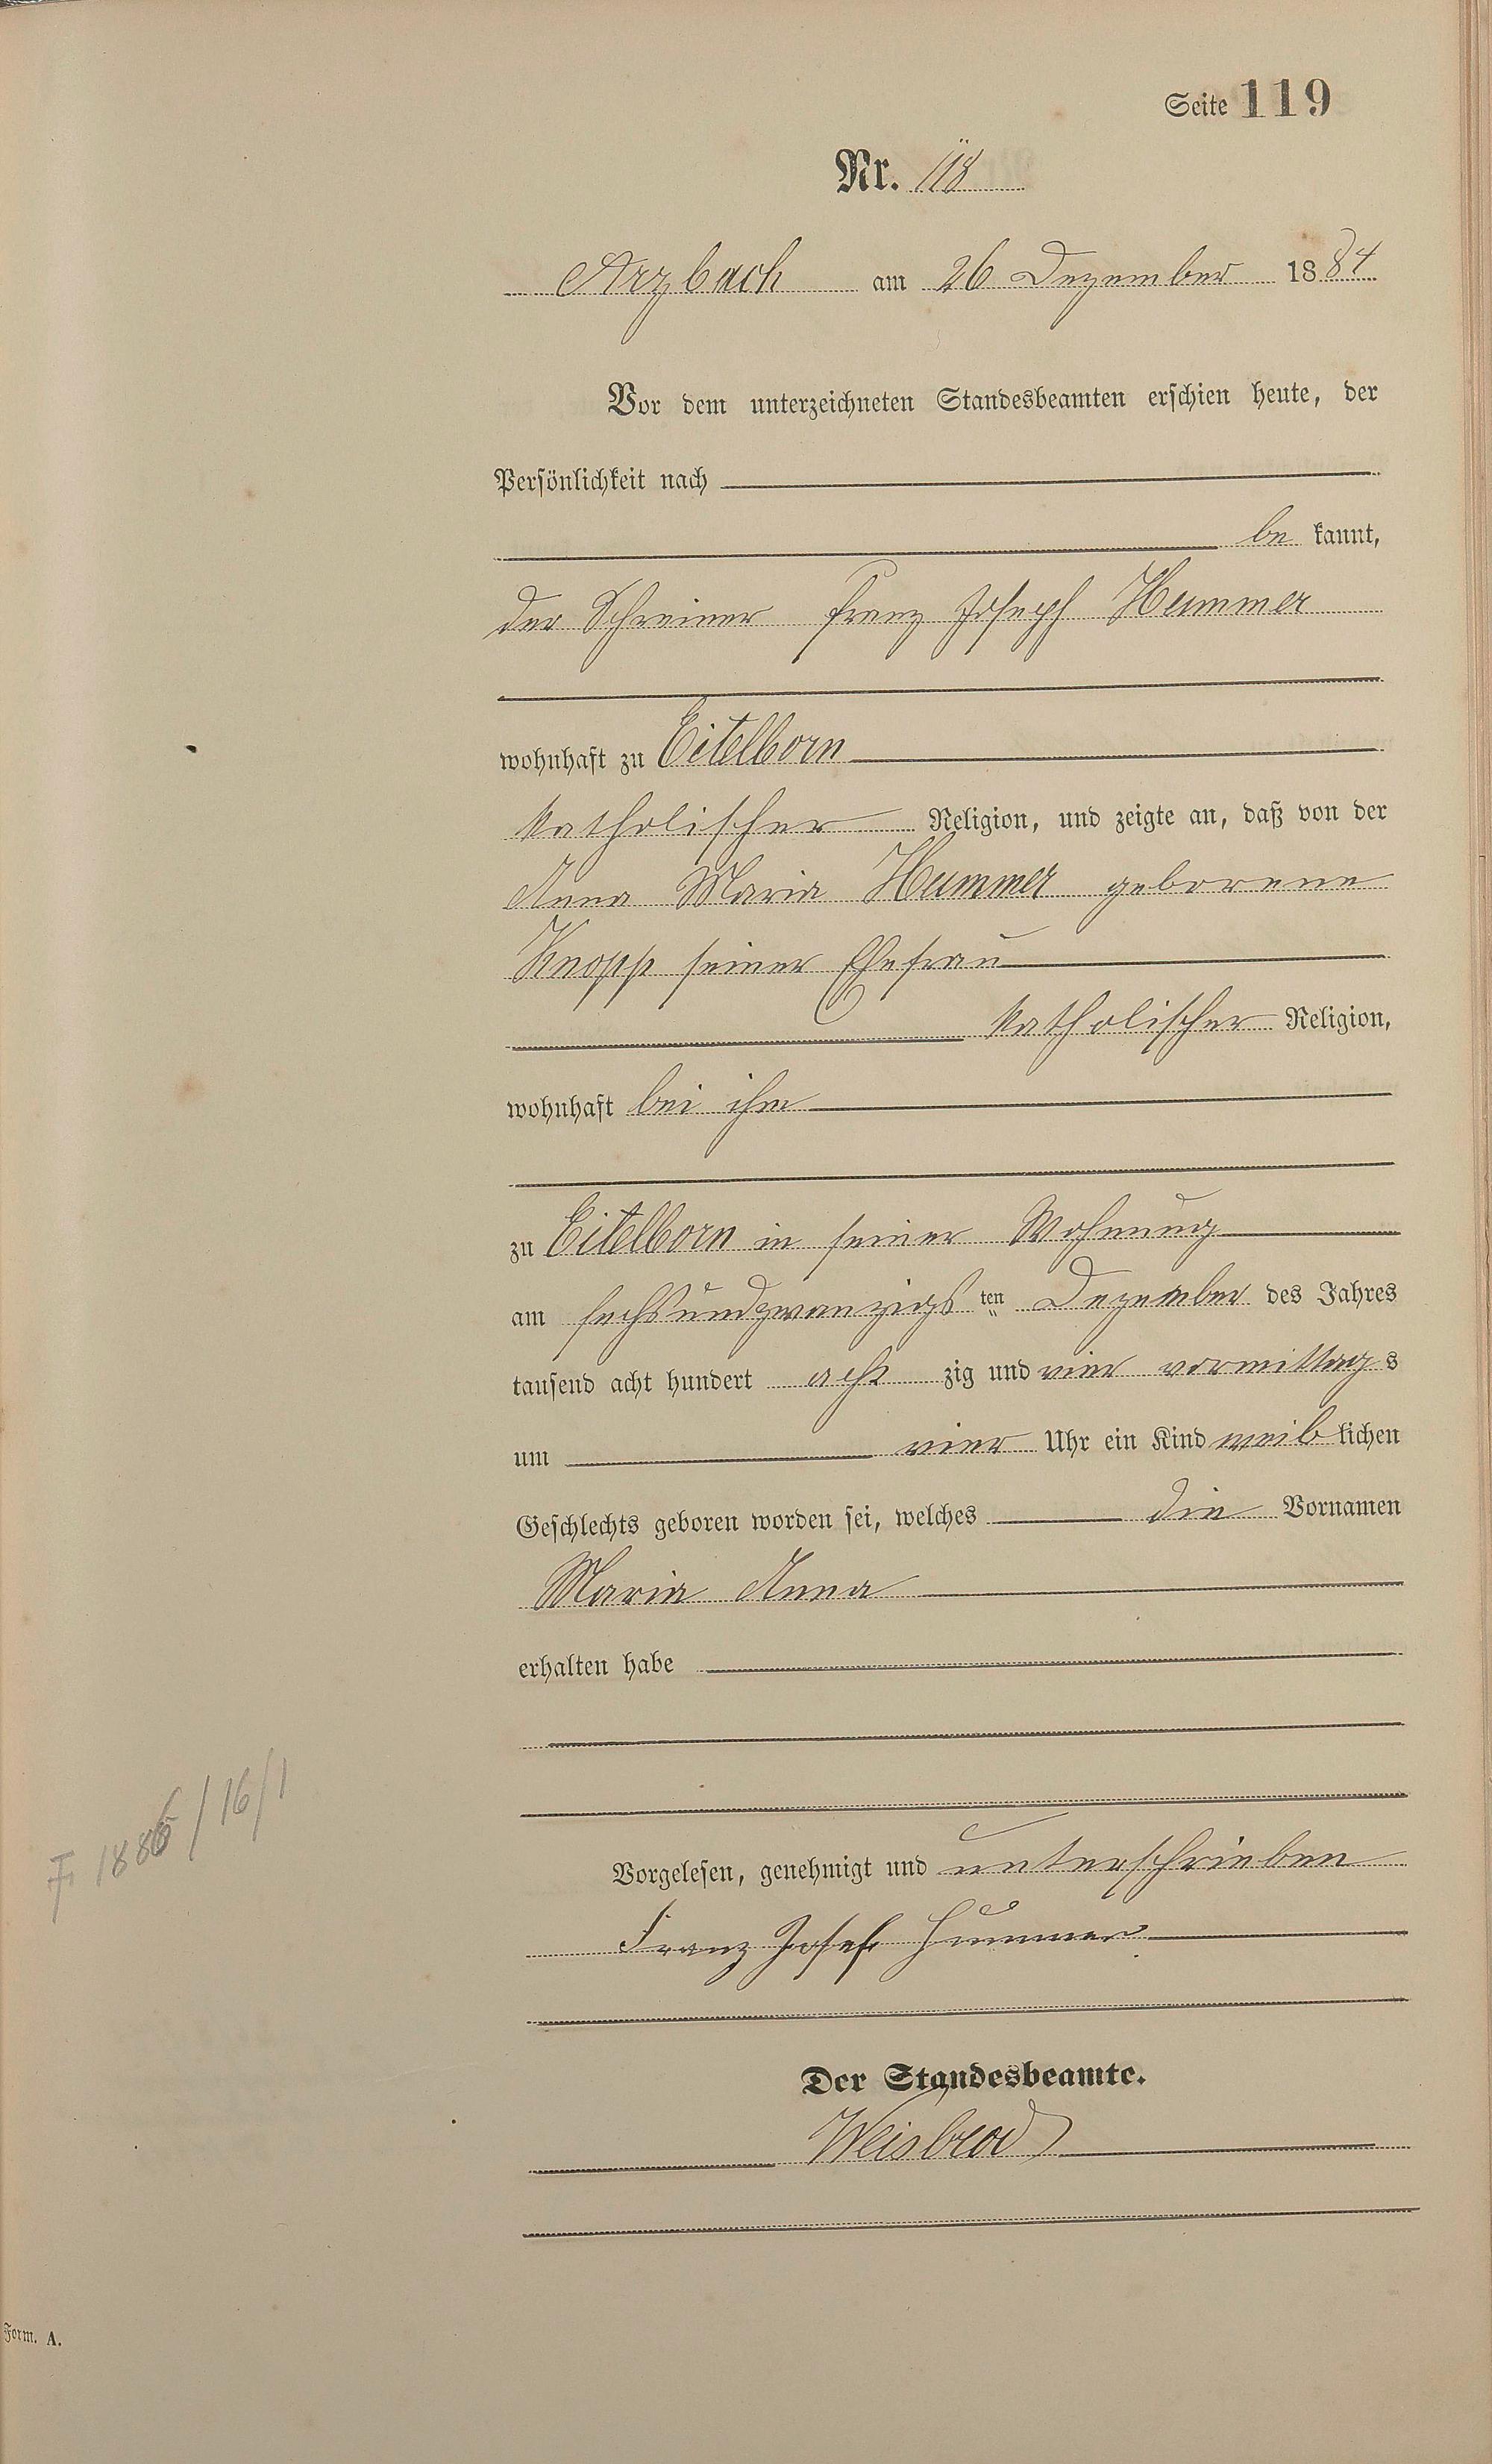 Seite 119
Nr. 118
Arzbach am 26 Dezember 1884
Vor dem unterzeichneten Standesbeamten erschien heute, der
Persönlichkeit nach
be kannt,
der Schreiner Franz Joseph Hummer
wohnhaft zu Eitelborn
katholischer Religion, und zeigte an, daß von der
Anna Maria Hummer geborene
Knopp seiner Ehefrau
katholischer Religion,
wohnhaft bei ihm
zu Eitelborn in seiner Wohnung
am sechsundzwanzigs ten Dezember des Jahres
tausend acht hundert acht zig und vier vormittag s
um vier Uhr ein Kind weib lichen
Geschlechts geboren worden sei, welches die Vornamen
Maria Anna
erhalten habe
1886/16/1
Vorgelesen, genehmigt und unterschrieben
Franz Josef Hummer
Der Standesbeamte.
Weisbrod
Form. A.